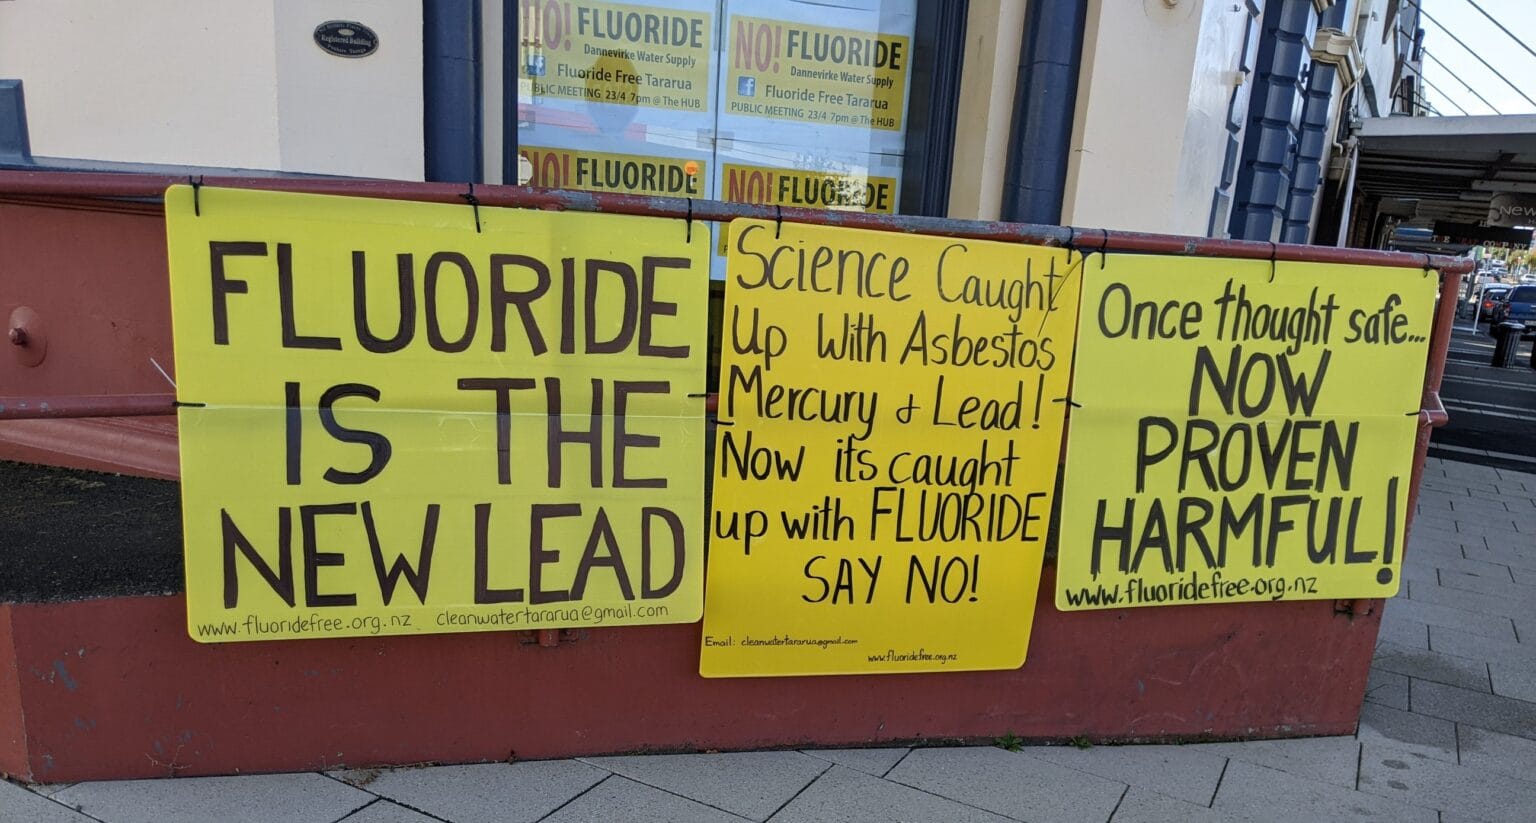 NO! FLUORIDE
Dannevirke Water Supply
Fluoride Free Tararua
PUBLIC MEETING 23/4 7pm @ The HUB
NO! FLUORIDE
Dannevirke Water Supply
Fluoride Free Tararua
PUBLIC MEETING 23/4 7pm @ The HUB
NO! FLUORIDE
NO! FLUORIDE
Registered Building
FLUORIDE
IS THE
NEW LEAD
www.fluoridefree.org.nz cleanwatertararua@gmail.com
Science Caught
Up With Asbestos
Mercury & Lead!
Now its caught
up with FLUORIDE
SAY NO!
Email: cleanwatertararua@gmail.com
www.fluoridefree.org.nz
Once thought safe...
NOW
PROVEN
HARMFUL!
www.fluoridefree.org.nz